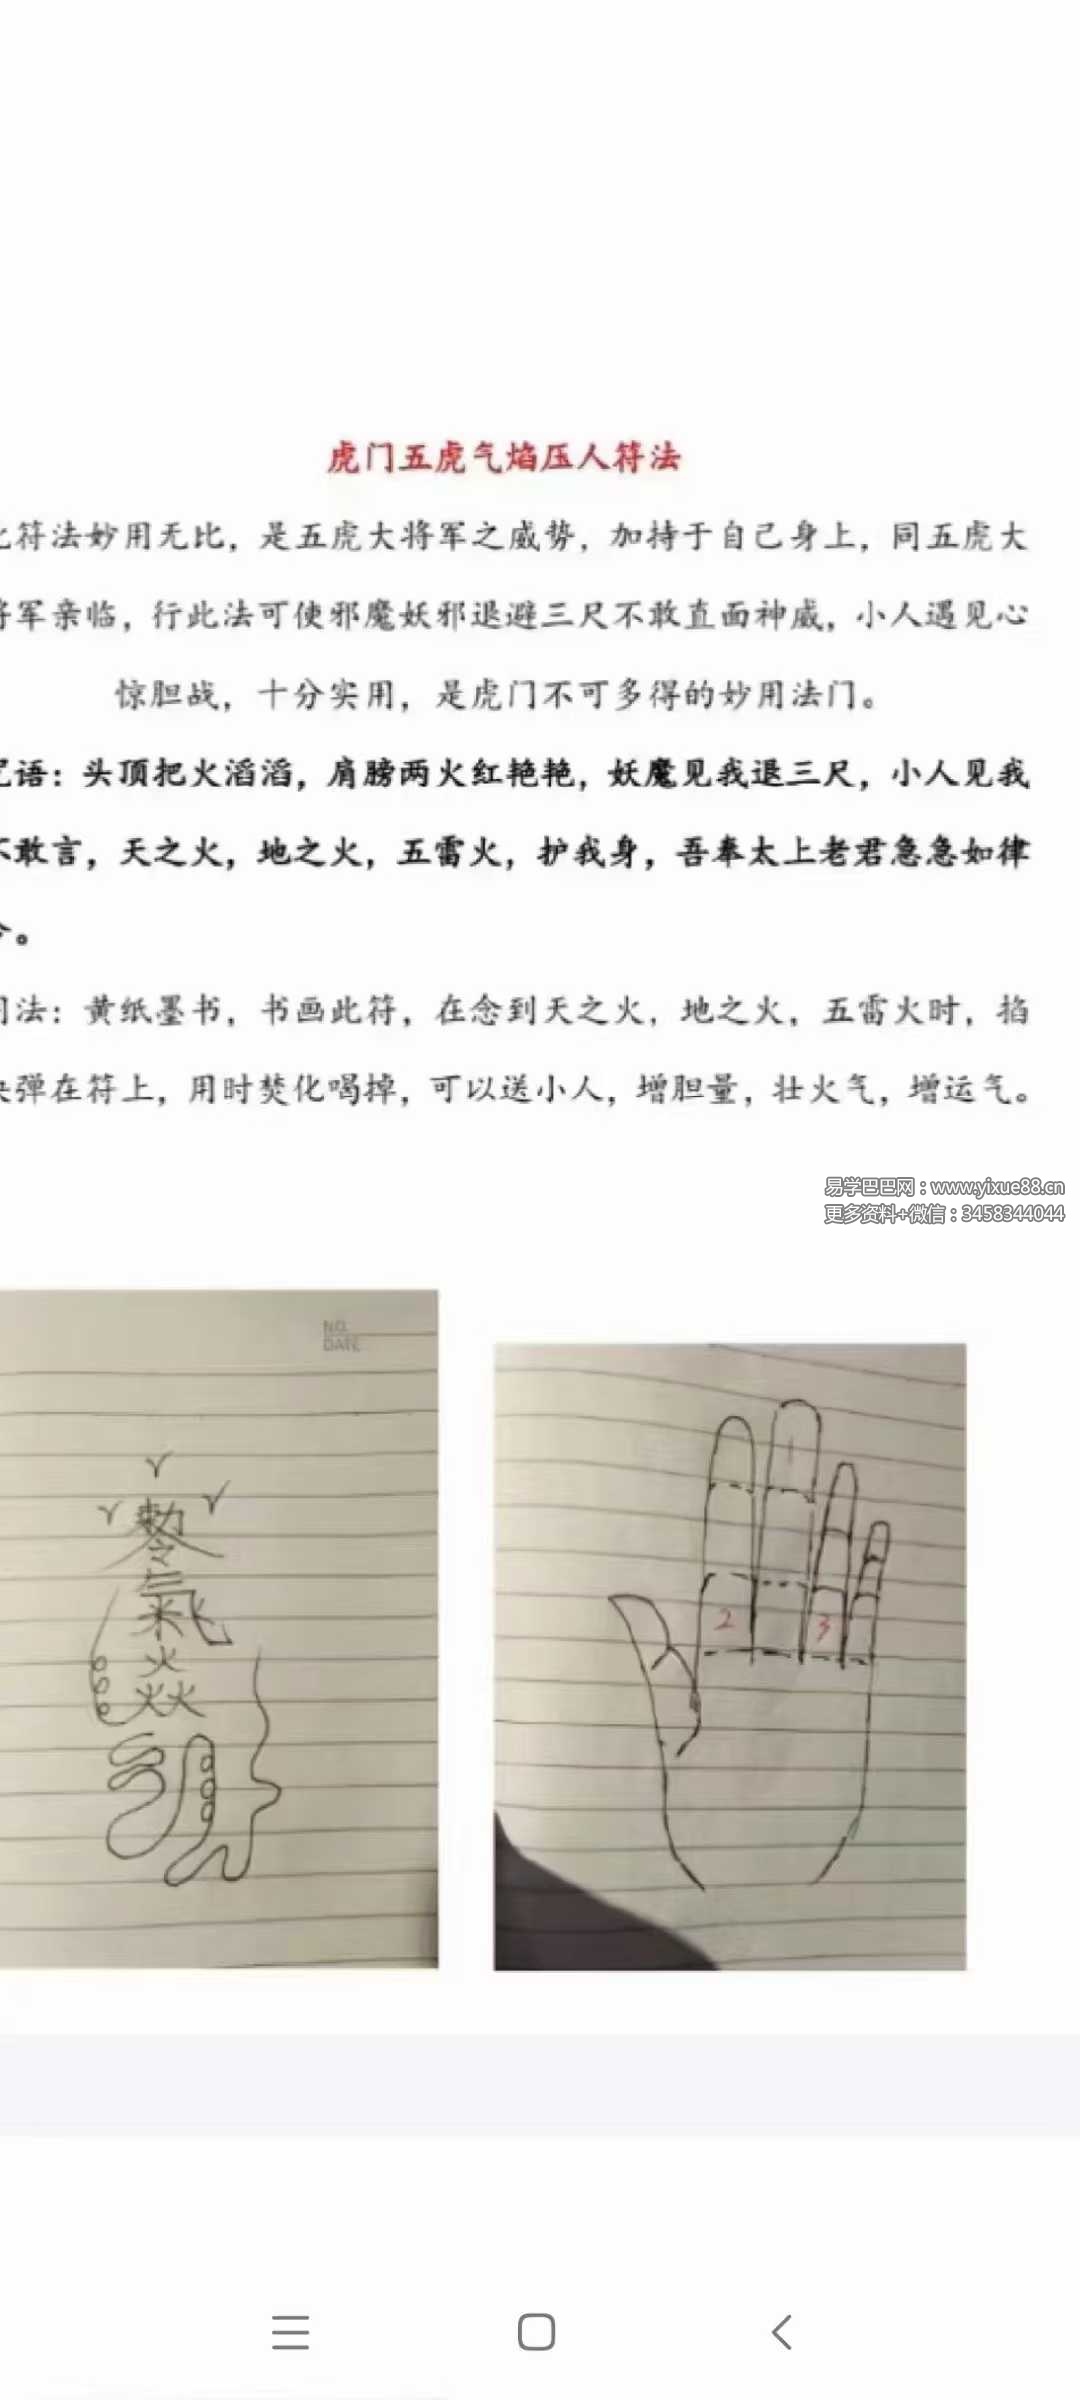 虎门五虎气焰压人符法
符法妙用无比，是五虎大将军之威势，加持于自己身上，同五虎大
军亲临，行此法可使邪魔妖邪退避三尺不敢直面神威，小人遇见心
惊胆战，十分实用，是虎门不可多得的妙用法门。
语：头顶把火滔滔，肩膀两火红艳艳，妖魔见我退三尺，小人见我
敢言，天之火，地之火，五雷火，护我身，吾奉太上老君急急如律
。
法：黄纸墨书，书画此符，在念到天之火，地之火，五雷火时，掐
弹在符上，用时焚化喝掉，可以送小人，增胆量，壮火气，增运气。
易学巴巴网：www.yixue88.cn
更多资料+微信：3458344044
NO.
DATE
令
火
火火
1
2
3